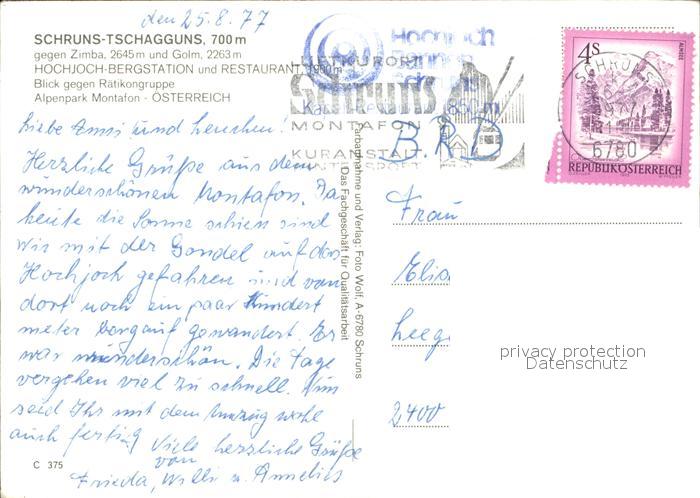 den 25.8.77
SCHRUNS-TSCHAGGUNS, 700 m
gegen Zimba, 2645 m und Golm, 2263 m
HOCHJOCH-BERGSTATION und RESTAURANT, 1900 m
Blick gegen Rätikongruppe
Alpenpark Montafon - ÖSTERREICH
Liebe Emmi und Lenchen!
Herzliche Grüße aus dem
wunderschönen Montafon. Da
heute die Sonne schien sind
wir mit der Gondel auf das
Hochjoch gefahren und von
dort noch ein paar Hundert
meter bergauf gewandert. Es
war wunderschön. Die Tage
vergehen viel zu schnell. Nun
seid Ihr mit dem Umzug wohl
auch fertig. Viele herzliche Grüße
von
Frieda, Willi u. Annelies
C 375
Farbaufnahme und Verlag: Foto Wolf, A-6780 Schruns
Das Fachgeschäft für Qualitätsarbeit
LUFTKURORT
Schruns
MONTAFON
KURANSTALT
WINTERSPORT
Hochjoch
Bahnen
Schruns
850 m
4S
ALMSEE
SCHRUNS
6780
REPUBLIK ÖSTERREICH
B.R.D
Frau
Elis
Leeg
2400
privacy protection
Datenschutz